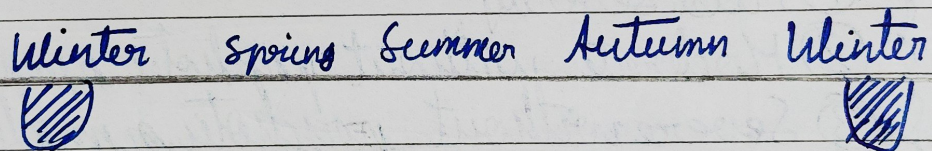 Winter Spring Summer Autumn Winter